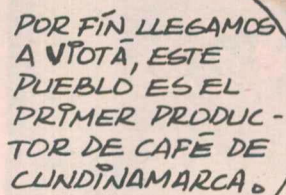 POR FÍN LLEGAMOS
A VIOTÁ, ESTE
PUEBLO ES EL
PRIMER PRODUC-
TOR DE CAFÉ DE
CUNDINAMARCA.